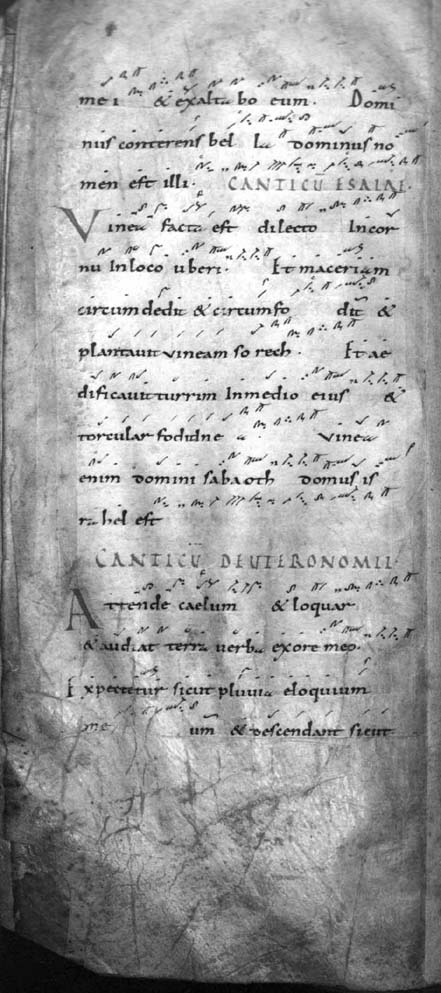 mei & exalta bo eum. Domi
nus conterens bel la dominus no
men est illi. CANTICŪ ESAIAE.
Vinea facta est dilecto Incor
nu Inloco uberi. Et maceriam
circumdedit & circumfo dit &
plantauit vineam sorech. Et ae
dificauit turrim Inmedio eius &
torcular fodidne a Vinea
enim domini sabaoth domus is
rahel est
CANTICŪ DEUTERONOMII
Attende caelum & loquar
& audiat terra uerba exore meo.
Expectetur sicut pluuia eloquium
me um & descendant sicut